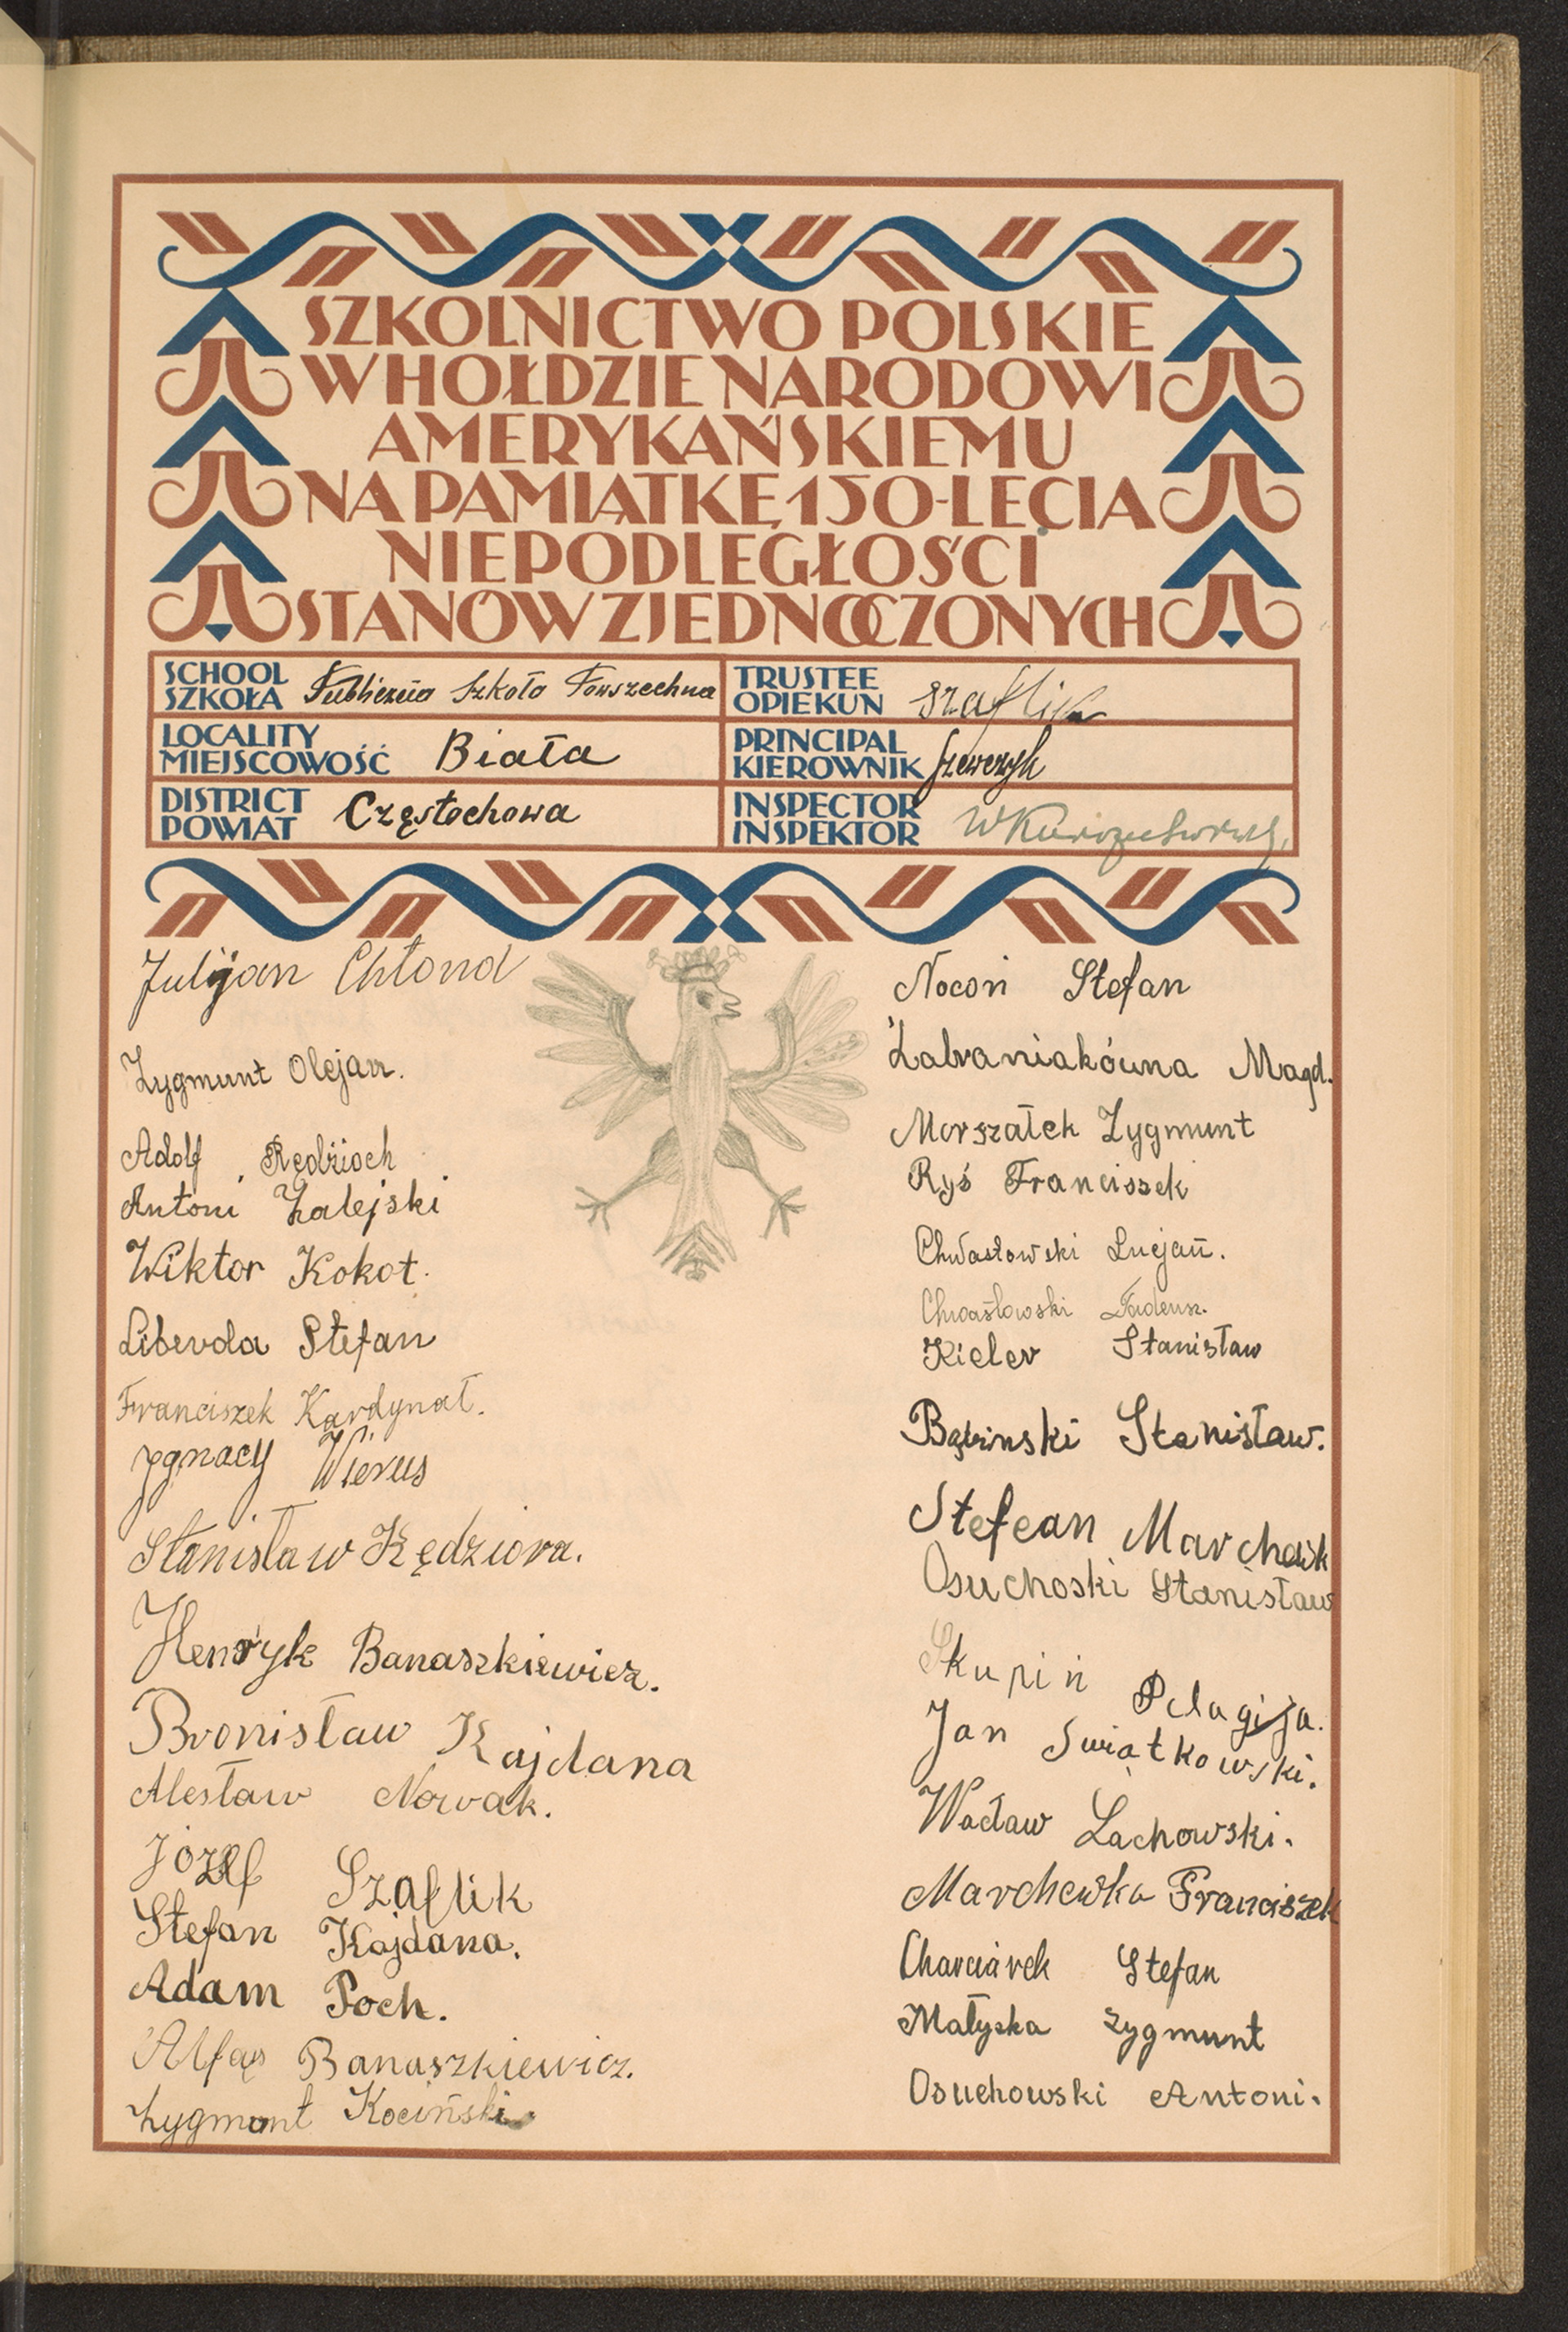 SZKOLNICTWO POLSKIE
W HOŁDZIE NARODOWI
AMERYKAŃSKIEMU
NA PAMIĄTKĘ 150-LECIA
NIEPODLEGŁOŚCI
STANÓW ZJEDNOCZONYCH
SCHOOL
SZKOŁA Publiczna Szkoła Powszechna
TRUSTEE
OPIEKUN Szaflik
LOCALITY
MIEJSCOWOŚĆ Biała
PRINCIPAL
KIEROWNIK Szewczyk
DISTRICT
POWIAT Częstochowa
INSPECTOR
INSPEKTOR
Julijan Chłond
Zygmunt Olejan.
Adolf Rędzioch
Antoni Zalejski
Wiktor Kokot.
Liberda Stefan
Franciszek Kardynał.
Ignacy Wierus
Stanisław Kędziora.
Henryk Banaszkiewicz.
Bronisław Kajdana
Nowak.
Józef Szaflik
Stefan Kajdana.
Adam Poch.
Banaszkiewicz.
Zygmunt Kociński.
Nocoń Stefan
Żabraniakówna Magd.
Morszałek Zygmunt
Ryś Franciszek
Chwastowski Lucjan.
Chwastowski Tadeusz.
Kieler Stanisław
Bąbinski Stanisław.
Stefean Marchewk
Osuchoski Stanisław
Skupiń Pelagija.
Jan Swiątkowski.
Wacław Lachowski.
Marchewka Franciszek
Charciarek Stefan
Małyska Zygmunt
Osuchowski Antoni.